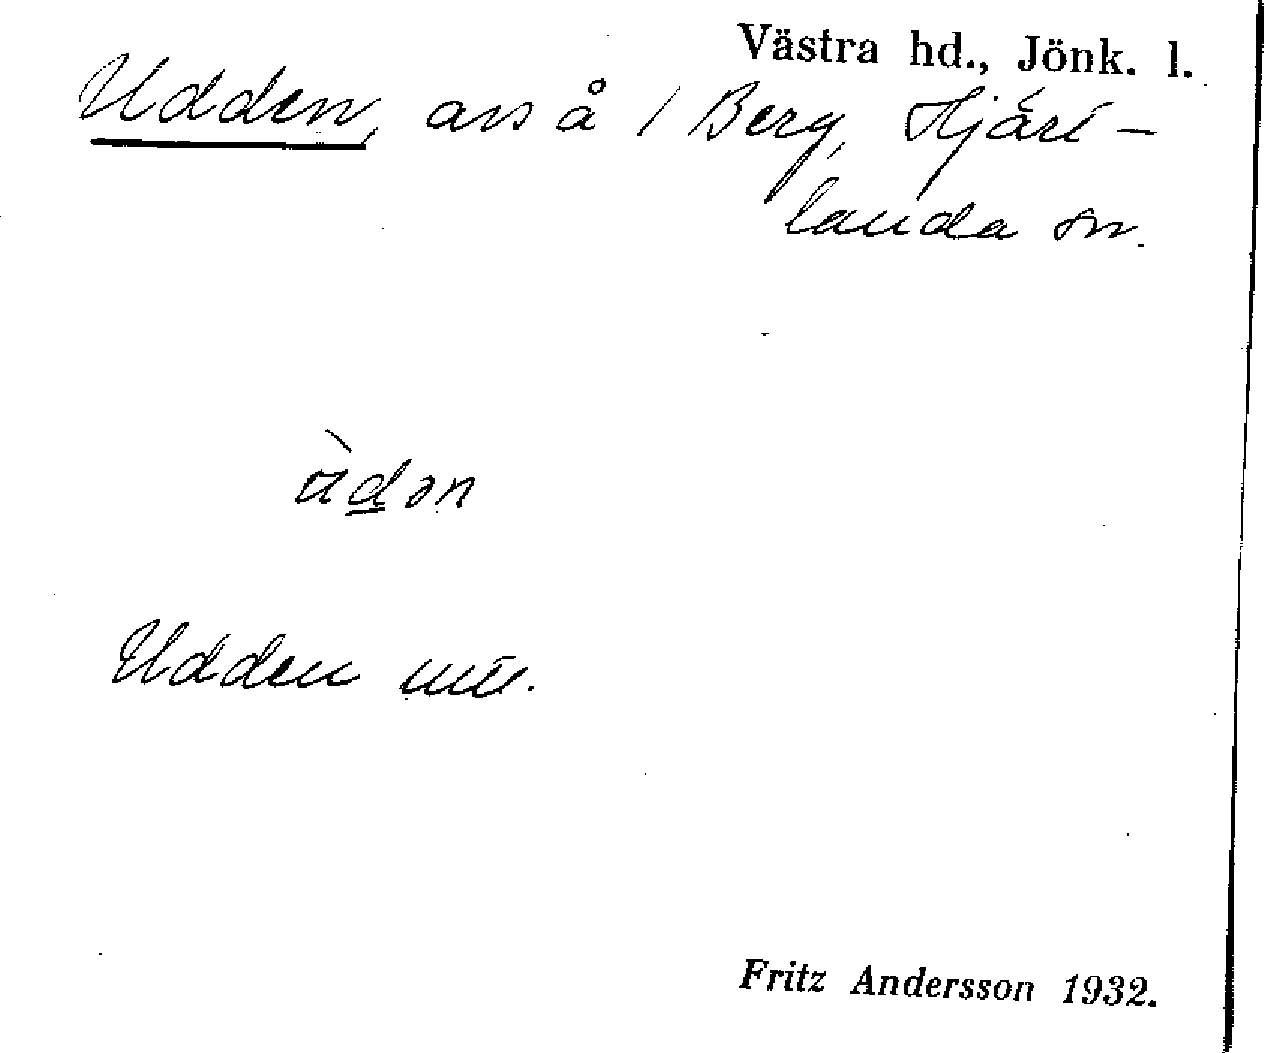 Västra hd., Jönk. l.
Udden, avs å 1 Berg, Hjärt-
landa sn.
ùdən
Udden
Fritz Andersson 1932.